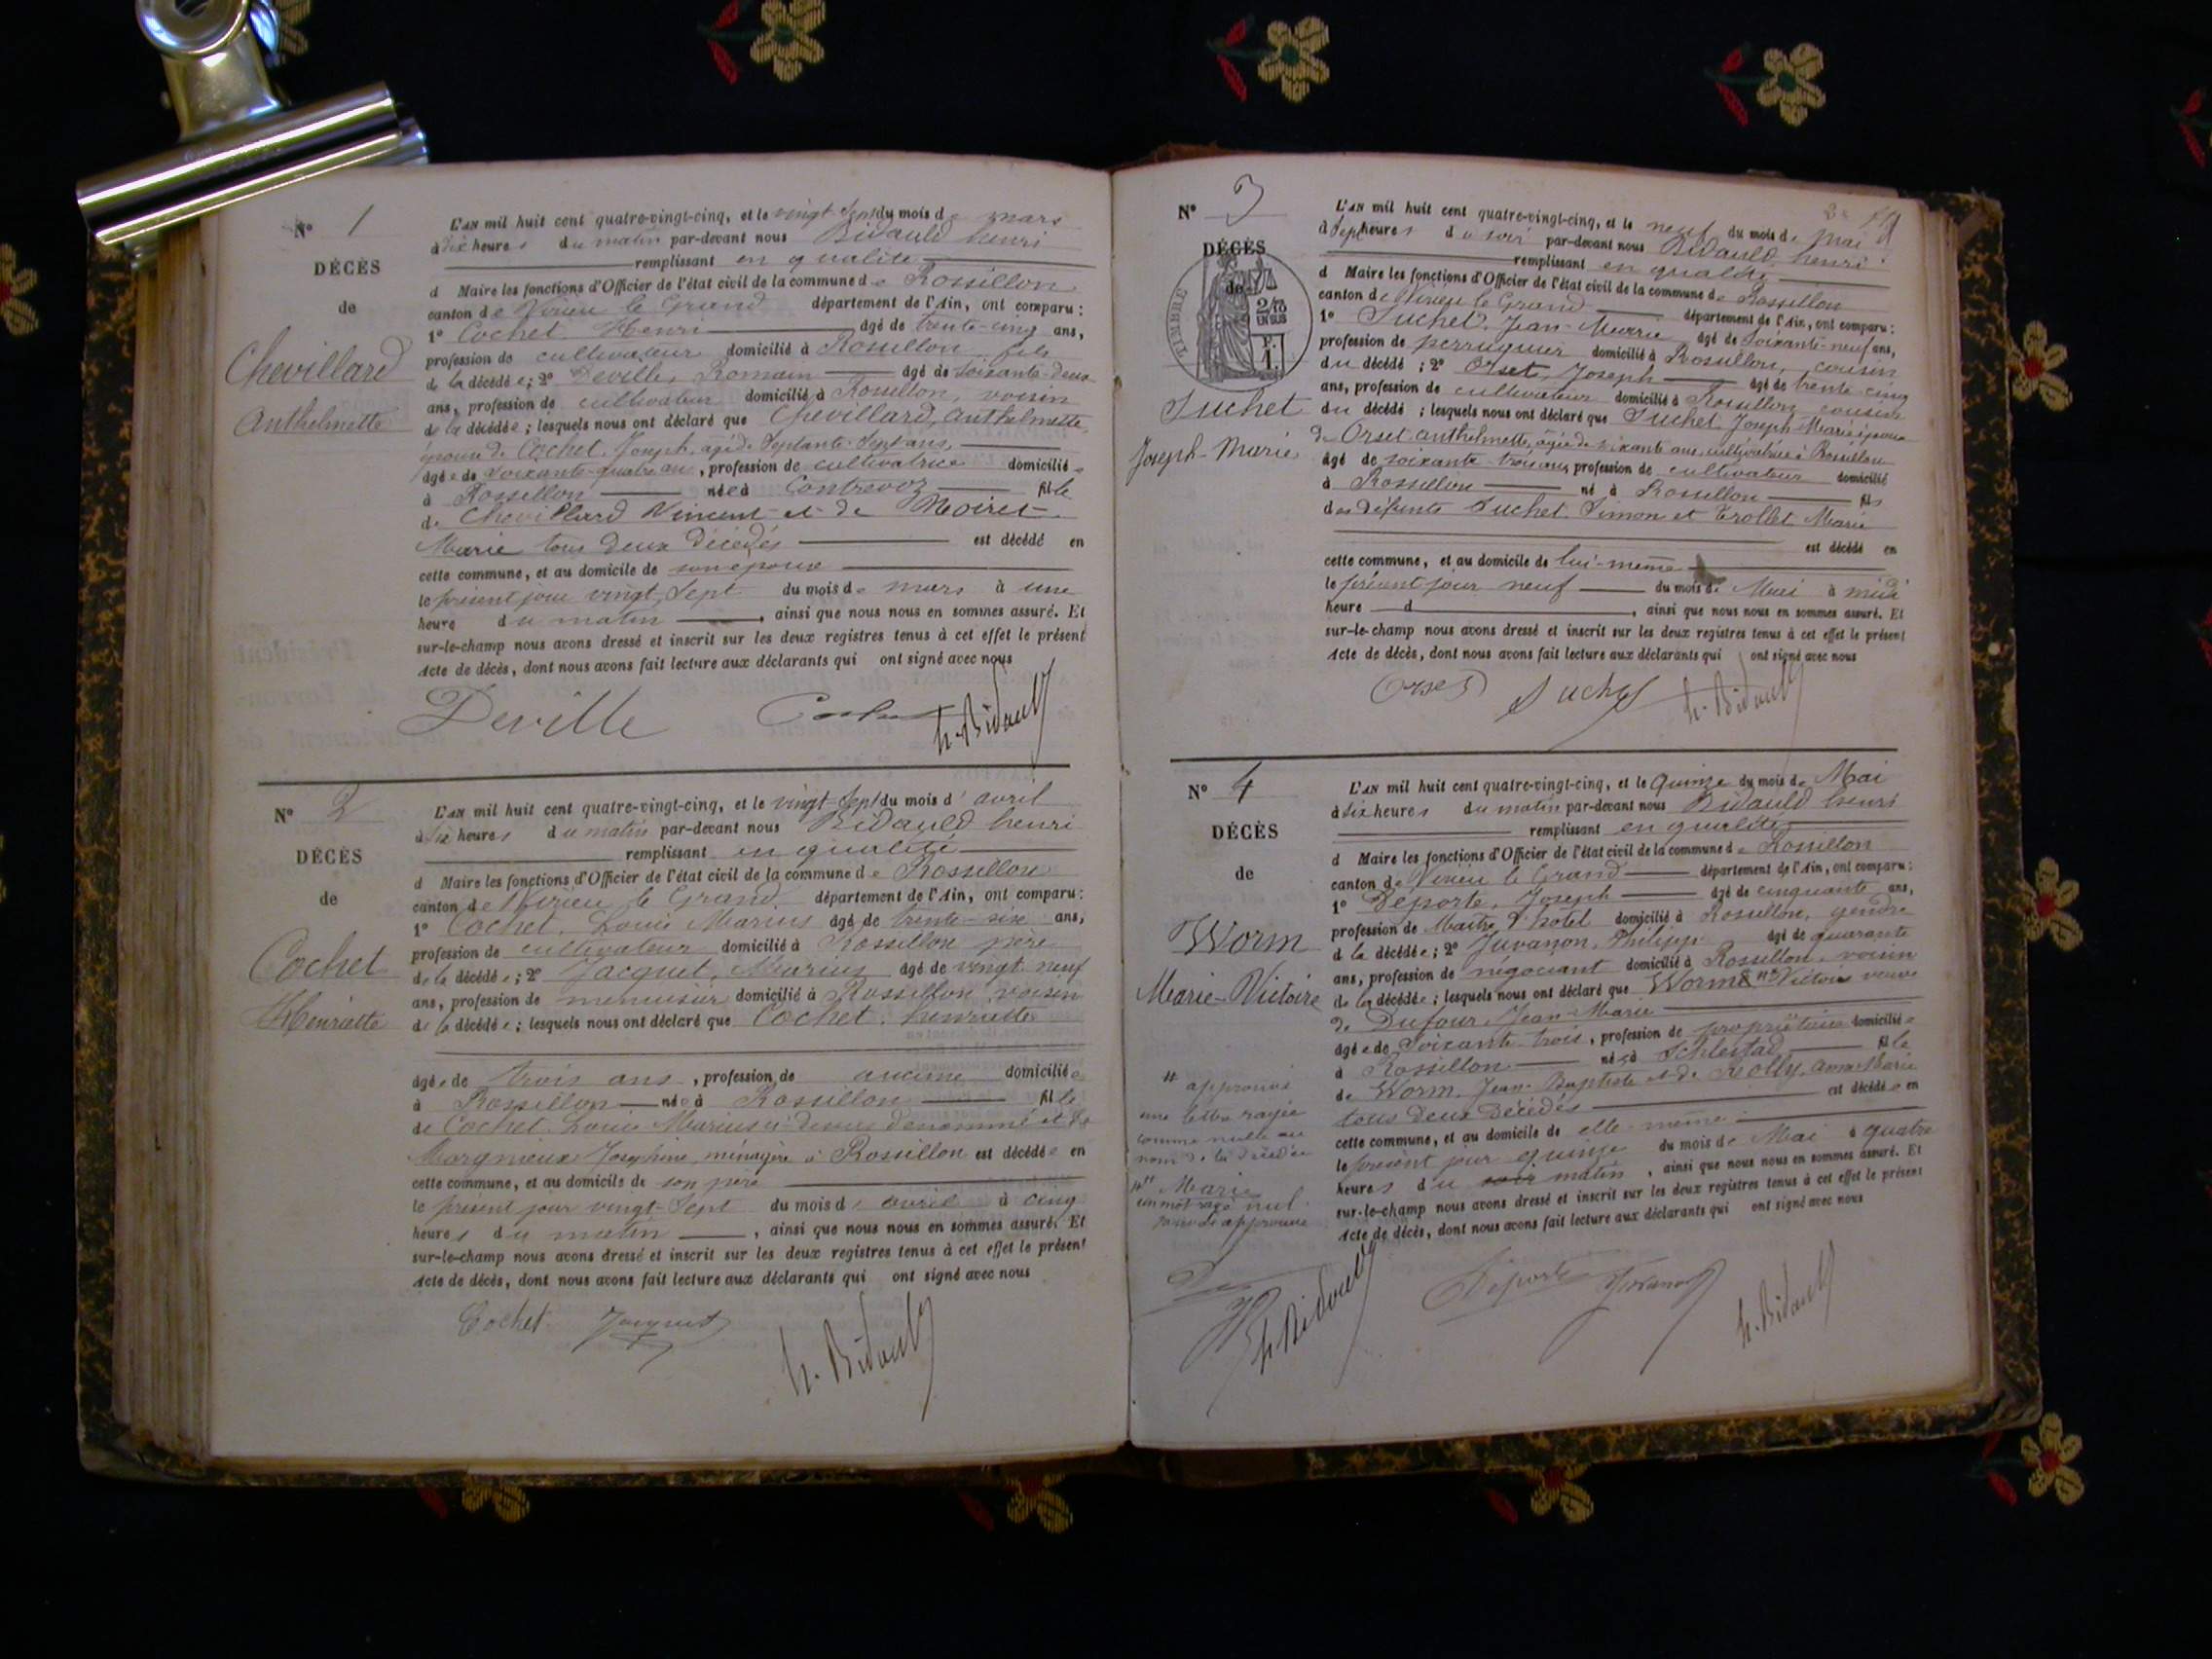 N° 1
DÉCÈS
de
Chevillard
Anthelmette
L'AN mil huit cent quatre-vingt-cinq, et le vingt sept du mois de mars
à dix heures du matin par-devant nous Bidauld henri
remplissant en qualité
d Maire les fonctions d'Officier de l'état civil de la commune de Rossillon
canton de Virieu le Grand département de l'Ain, ont comparu :
1° Cochet Henri âgé de trente-cinq ans,
profession de cultivateur domicilié à Rossillon fils
de la décédée ; 2° Deville, Romain âgé de soixante-deux
ans, profession de cultivateur domicilié à Rossillon, voisin
de la décédée ; lesquels nous ont déclaré que Chevillard, anthelmette
épouse de Cochet Joseph, âgé de septante-sept ans,
âgée de soixante-quatre ans, profession de cultivatrice domiciliée
à Rossillon née à Contrevoz fille
de Chevillard Vincent et de Moiret
Marie tous deux décédés est décédé en
cette commune, et au domicile de son épouse
le présent jour vingt sept du mois de mars à une
heure du matin, ainsi que nous nous en sommes assuré. Et
sur-le-champ nous avons dressé et inscrit sur les deux registres tenus à cet effet le présent
Acte de décès, dont nous avons fait lecture aux déclarants qui ont signé avec nous
Deville Cochet h. Bidauld
N° 2
DÉCÈS
de
Cochet
Henriette
L'AN mil huit cent quatre-vingt-cinq, et le vingt-sept du mois d'avril
à six heures du matin par-devant nous Bidauld henri
remplissant en qualité
d Maire les fonctions d'Officier de l'état civil de la commune de Rossillon
canton de Virieu le Grand département de l'Ain, ont comparu :
1° Cochet Louis Marius âgé de trente-six ans,
profession de cultivateur domicilié à Rossillon père
de la décédée ; 2° Jacquet, Marius âgé de vingt neuf
ans, profession de menuisier domicilié à Rossillon, voisin
de la décédée ; lesquels nous ont déclaré que Cochet henriette
âgée de trois ans, profession de aucune domiciliée
à Rossillon née à Rossillon fille
de Cochet Louis Marius ci-dessus dénommé et de
Morgnieux Joséphine, ménagère à Rossillon est décédée en
cette commune, et au domicile de son père
le présent jour vingt-sept du mois d'avril à cinq
heures du matin, ainsi que nous nous en sommes assuré. Et
sur-le-champ nous avons dressé et inscrit sur les deux registres tenus à cet effet le présent
Acte de décès, dont nous avons fait lecture aux déclarants qui ont signé avec nous
Cochet Jacquet h. Bidauld
N° 3
DÉCÈS
de
TIMBRE
2/10 EN SUS
F. 1.
Suchet
Joseph-Marie
L'AN mil huit cent quatre-vingt-cinq, et le neuf du mois de mai
à sept heures du soir par-devant nous Bidauld henri
remplissant en qualité
d Maire les fonctions d'Officier de l'état civil de la commune de Rossillon
canton de Virieu le Grand département de l'Ain, ont comparu :
1° Suchet Jean-Marie âgé de soixante-neuf ans,
profession de perruquier domicilié à Rossillon, cousin
du décédé ; 2° Orset, Joseph âgé de trente cinq
ans, profession de cultivateur domicilié à Rossillon, cousin
du décédé ; lesquels nous ont déclaré que Suchet Joseph-Marie époux
de Orset anthelmette, âgée de soixante ans, cultivatrice à Rossillon
âgé de soixante-trois ans, profession de cultivateur domicilié
à Rossillon né à Rossillon fils
des défunts Suchet Simon et Trollet Marie
est décédé en
cette commune, et au domicile de lui-même
le présent jour neuf du mois de Mai à midi
heure d, ainsi que nous nous en sommes assuré. Et
sur-le-champ nous avons dressé et inscrit sur les deux registres tenus à cet effet le présent
Acte de décès, dont nous avons fait lecture aux déclarants qui ont signé avec nous
Orset Suchet h. Bidauld
N° 4
DÉCÈS
de
Worm
Marie-Victoire
L'AN mil huit cent quatre-vingt-cinq, et le Quinze du mois de Mai
à dix heures du matin par-devant nous Bidauld henri
remplissant en qualité
d Maire les fonctions d'Officier de l'état civil de la commune de Rossillon
canton de Virieu le Grand département de l'Ain, ont comparu :
1° Déporte, Joseph âgé de cinquante ans,
profession de Maître d'hôtel domicilié à Rossillon, gendre
d la décédée ; 2° Juvanon, Philippe âgé de quarante
ans, profession de négociant domicilié à Rossillon, voisin
de la décédée ; lesquels nous ont déclaré que Worm Victoire veuve
de Dufour Jean-Marie
âgée de soixante-trois, profession de propriétaire domiciliée
à Rossillon née à Schlestad fille
de Worm, Jean-Baptiste et de Nolly, anne Marie
tous deux décédés est décédée en
cette commune, et au domicile de elle-même
le présent jour quinze du mois de Mai à quatre
heures du soir matin, ainsi que nous nous en sommes assuré. Et
sur-le-champ nous avons dressé et inscrit sur les deux registres tenus à cet effet le présent
Acte de décès, dont nous avons fait lecture aux déclarants qui ont signé avec nous
approuvé
une lettre rayée
comme nulle au
nom de la décédée
Marie
un mot rayé nul
approuvé
h. Bidauld Déporte Juvanon h. Bidauld